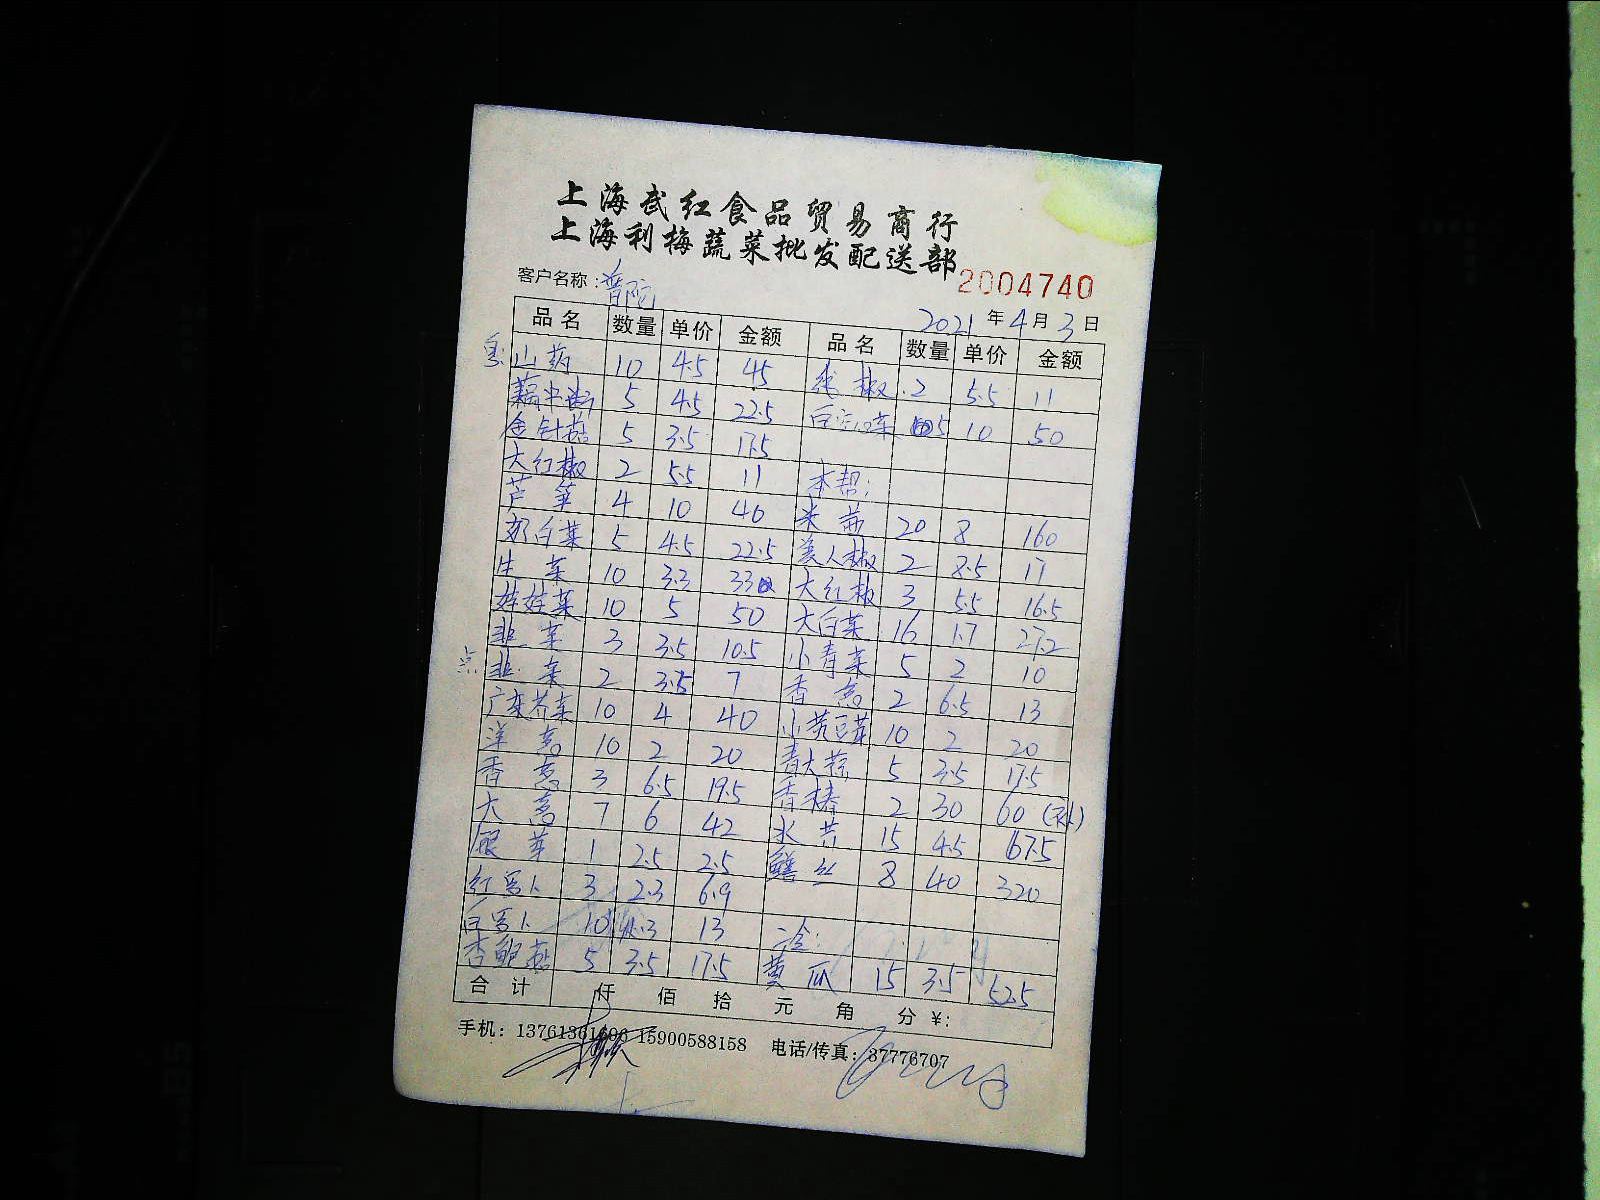 上海武红食品贸易商行
上海利梅蔬菜批发配送部
2004740
客户名称：普陀
2021年4月3日
品名 数量 单价 金额 品名 数量 单价 金额
山药 10 4.5 45 线椒 2 5.5 11
藕中断 5 4.5 22.5 5 10 50
金针菇 5 3.5 17.5
大红椒 2 5.5 11 本帮：
芦笋 4 10 40 米苋 20 8 160
奶白菜 5 4.5 22.5 美人椒 2 8.5 17
生菜 10 3.3 33 大红椒 3 5.5 16.5
娃娃菜 10 5 50 大白菜 16 1.7 27.2
韭菜 3 3.5 10.5 小青菜 5 2 10
点 韭菜 2 3.5 7 香葱 2 6.5 13
广东芥菜 10 4 40 小黄豆芽 10 2 20
洋葱 10 2 20 青大蒜 5 3.5 17.5
香葱 3 6.5 19.5 香椿 2 30 60
大葱 7 6 42 水芹 15 4.5 67.5
银芽 1 2.5 2.5 鳝丝 8 40 320
红罗卜 3 2.3 6.9
白罗卜 10 1.3 13 冷：
杏鲍菇 5 3.5 17.5 黄瓜 15 3.5 52.5
合计 仟 佰 拾 元 角 分 ¥：
手机：13761361696 15900588158 电话/传真：37776707